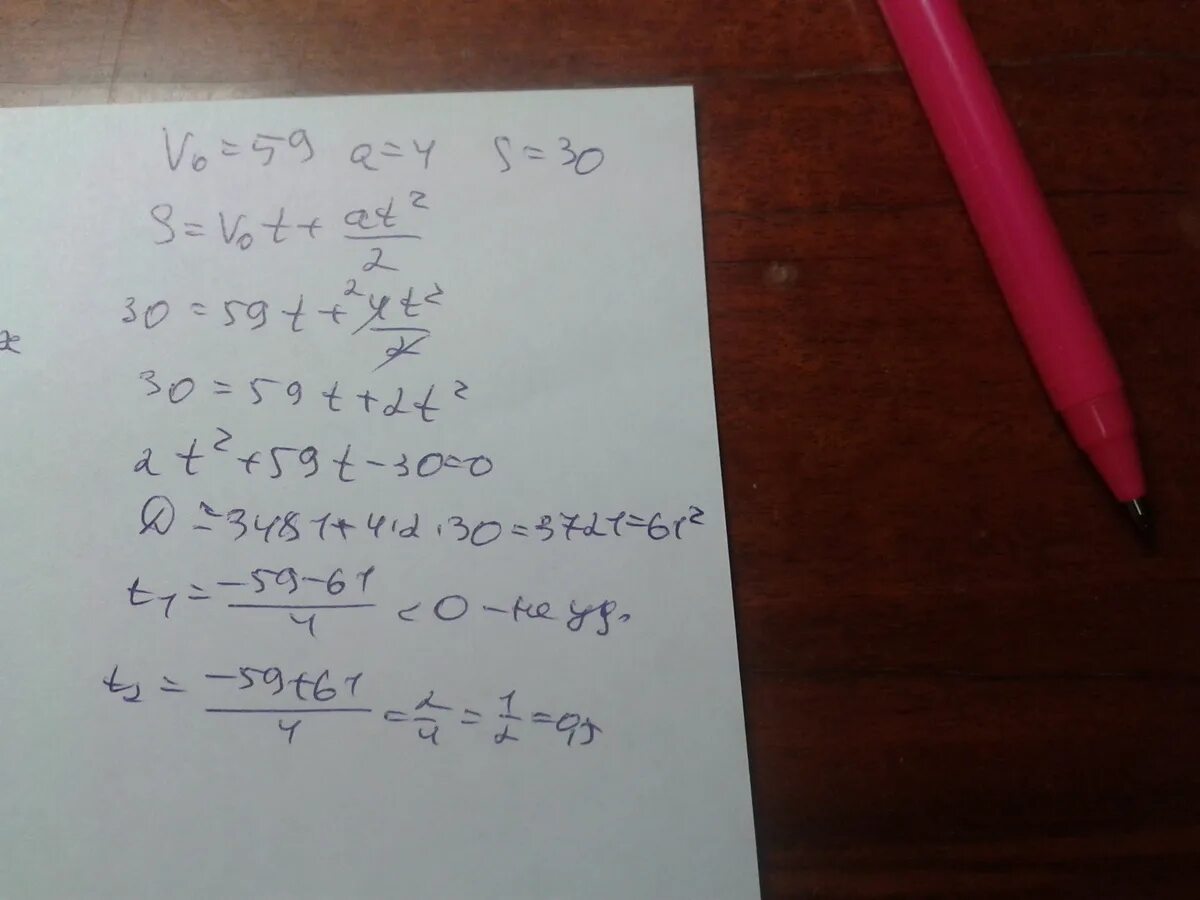 V₀ = 59 a = 4 S = 30
S = V₀t + at²/2
30 = 59t + ² 4t²/2
x
30 = 59t + 2t²
2t² + 59t - 30 = 0
D = 3481 + 4·2·30 = 3721 = 61²
t₁ = (-59-61)/4 < 0 - не уд.
t₂ = (-59+61)/4 = 2/4 = 1/2 = 0,5